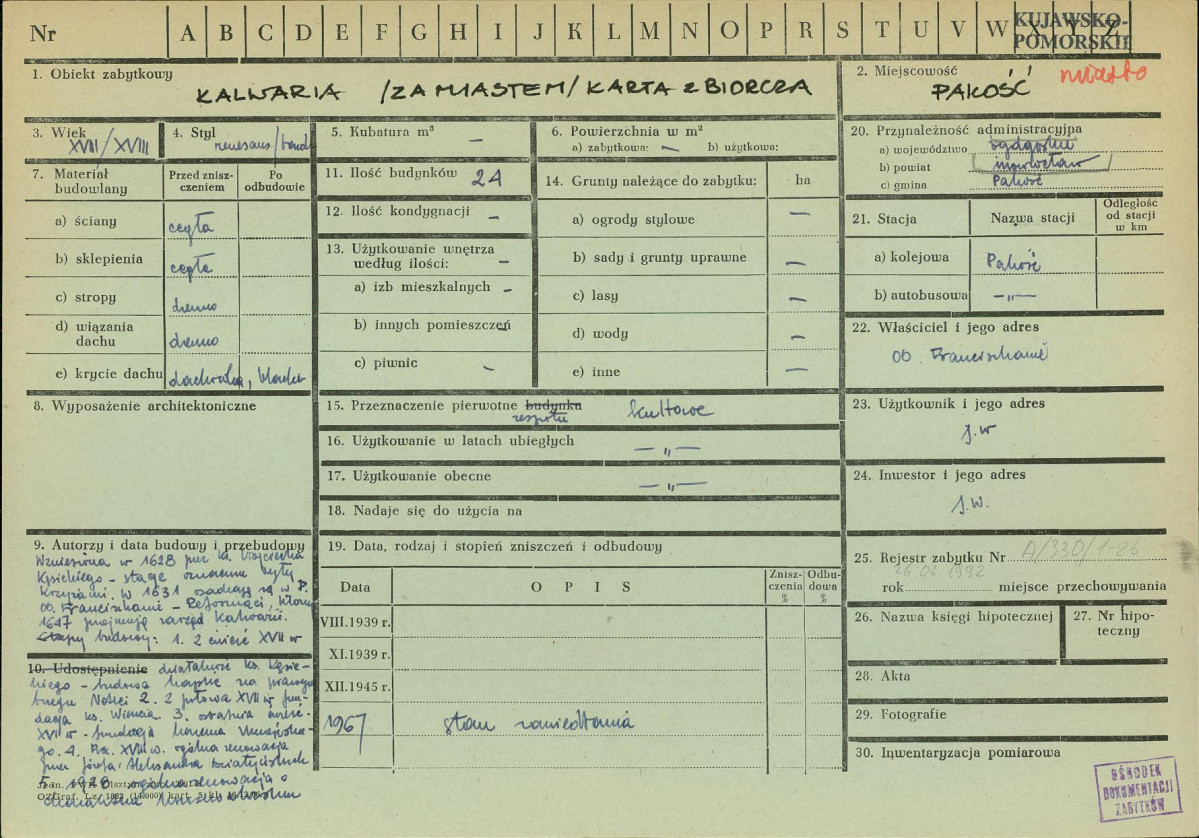 Nr A B C D E F G H I J K L M N O P R S T U V W X Y Z
KUJAWSKO-
POMORSKIE
1. Obiekt zabytkowy
KALWARIA /ZA MIASTEM/ KARTA ZBIORCZA
2. Miejscowość
miasto
PAKOŚĆ
3. Wiek
XVIII/XVIII
4. Styl
renesans/
5. Kubatura m³ —
6. Powierzchnia w m²
a) zabytkowa: — b) użytkowa:
7. Materiał
budowlany
Przed znisz-
czeniem
Po
odbudowie
a) ściany cegła
b) sklepienia cegła
c) stropy drewno
d) wiązania
dachu drewno
e) krycie dachu dachówka, blacha
8. Wyposażenie architektoniczne
9. Autorzy i data budowy i przebudowy
Wzniesiona w 1628 przez ks. Wojciecha
Kęsickiego - stacje oznaczone były
krzyżami. W 1631 osadzają się w P.
oo. Franciszkanie - Reformaci, którzy
1647 przejmują zarząd Kalwarii.
Etapy budowy: 1. 2 ćwierć XVII w
10. Udostępnienie działalność ks. Kęsic-
kiego - budowa kaplic na prawym
brzegu Noteci 2. 2 połowa XVII w fun-
dacja ks. 3. ostatnia ćwierć
XVII w - fundacja
go. 4. Pocz. XVIII w. ogólna renowacja
przez Józefa i Aleksandra Działyńskich
5. 1928 ogólna renowacja o
charakterze
11. Ilość budynków 24
12. Ilość kondygnacji —
13. Użytkowanie wnętrza
według ilości: —
a) izb mieszkalnych —
b) innych pomieszczeń
c) piwnic —
14. Grunty należące do zabytku: ha
a) ogrody stylowe —
b) sady i grunty uprawne —
c) lasy —
d) wody —
e) inne —
15. Przeznaczenie pierwotne budynku kultowe
zespołu
16. Użytkowanie w latach ubiegłych — „ —
17. Użytkowanie obecne — „ —
18. Nadaje się do użycia na
19. Data, rodzaj i stopień zniszczeń i odbudowy
Data
OPIS
Znisz-
czenia
%
Odbu-
dowa
%
VIII.1939 r.
XI.1939 r.
XII.1945 r.
1967 stan zaniedbania
20. Przynależność administracyjna
a) województwo bydgoskie
b) powiat inowrocław
c) gmina Pakość
21. Stacja
Nazwa stacji
Odległość
od stacji
w km
a) kolejowa Pakość
b) autobusowa — „ —
22. Właściciel i jego adres
oo. Franciszkanie
23. Użytkownik i jego adres
j.w
24. Inwestor i jego adres
j.w.
25. Rejestr zabytku Nr A/330/1-26
26.06 1992
rok miejsce przechowywania
26. Nazwa księgi hipotecznej
27. Nr hipo-
teczny
28. Akta
29. Fotografie
30. Inwentaryzacja pomiarowa
OŚRODEK
DOKUMENTACJI
ZABYTKÓW